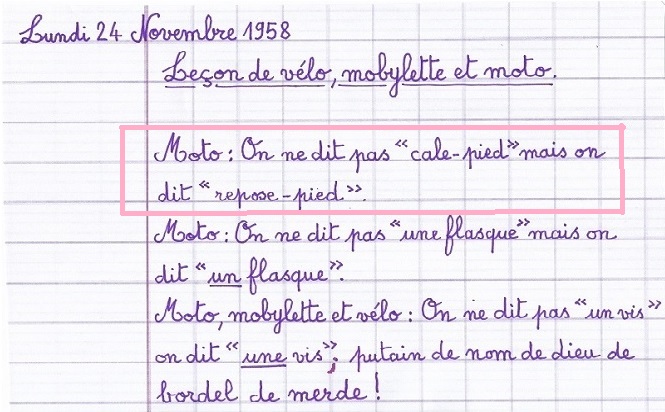 Lundi 24 Novembre 1958
Leçon de vélo, mobylette et moto.
Moto : On ne dit pas "cale-pied" mais on
dit "repose-pied".
Moto : On ne dit pas "une flasque" mais on
dit "un flasque".
Moto, mobylette et vélo : On ne dit pas "un vis"
on dit "une vis"; putain de nom de dieu de
bordel de merde !